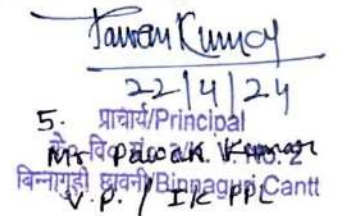 Pawan Kumar
22/4/24
5. प्राचार्य/Principal
Mr Pawan. Kumar
बिन्नागुड़ी छावनी/Binnaguri Cantt
V.P. / I/C PPC